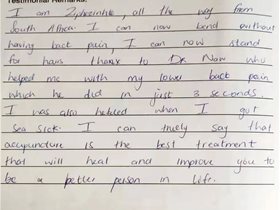 Testimonial Remarks:
I am Zyhreinhle, all the way from
South Africa. I can now bend without
having bact pain, I can now stand
for hours thanks to Dr. Now who
helped me with my lower back pain
which he did in just 3 seconds.
I was also helded when I got
sea sick. I can truely say that
acupuncture is the best treatment
that will heal and improve you to
be a better person in life.